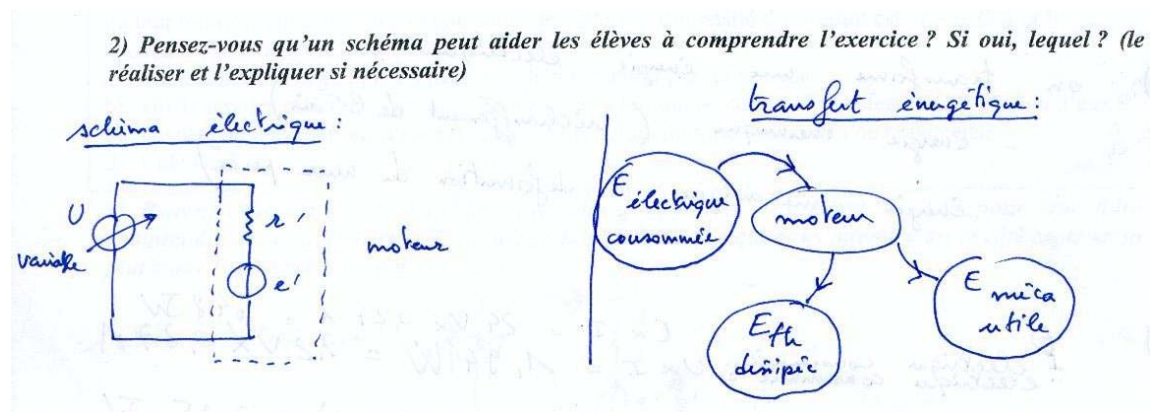 2) Pensez-vous qu'un schéma peut aider les élèves à comprendre l'exercice ? Si oui, lequel ? (le
réaliser et l'expliquer si nécessaire)
schéma électrique :
U
variable
r'
e'
moteur
transfert énergétique :
E électrique
consommée
moteur
E th
dissipée
E méca
utile